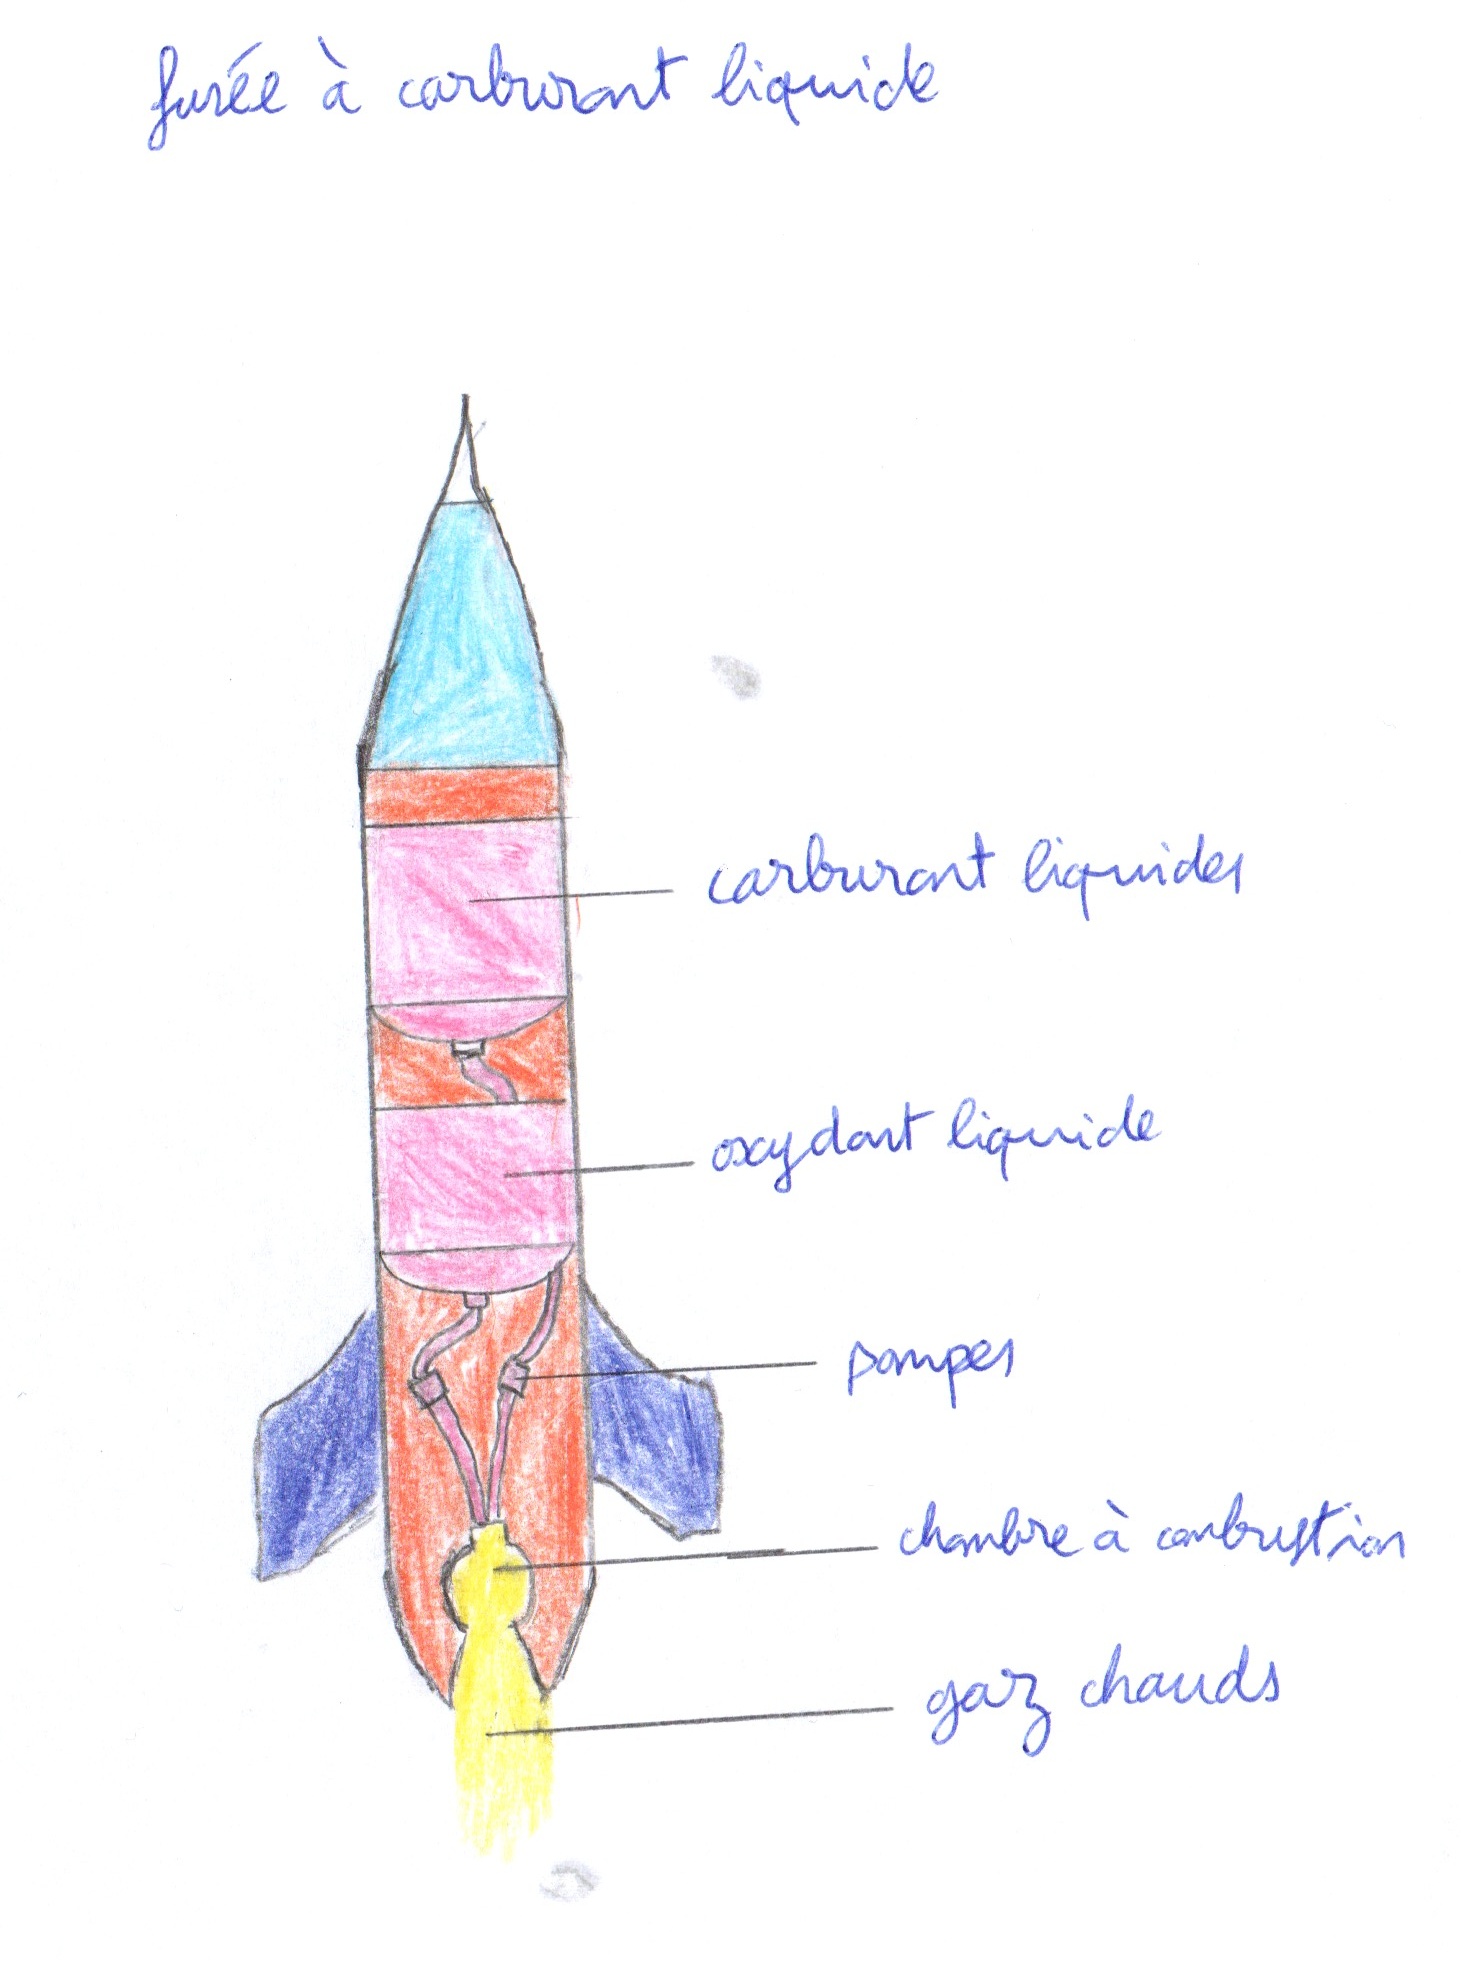 fusée à carburant liquide
carburant liquides
oxydant liquide
pompes
chambre à combustion
gaz chauds